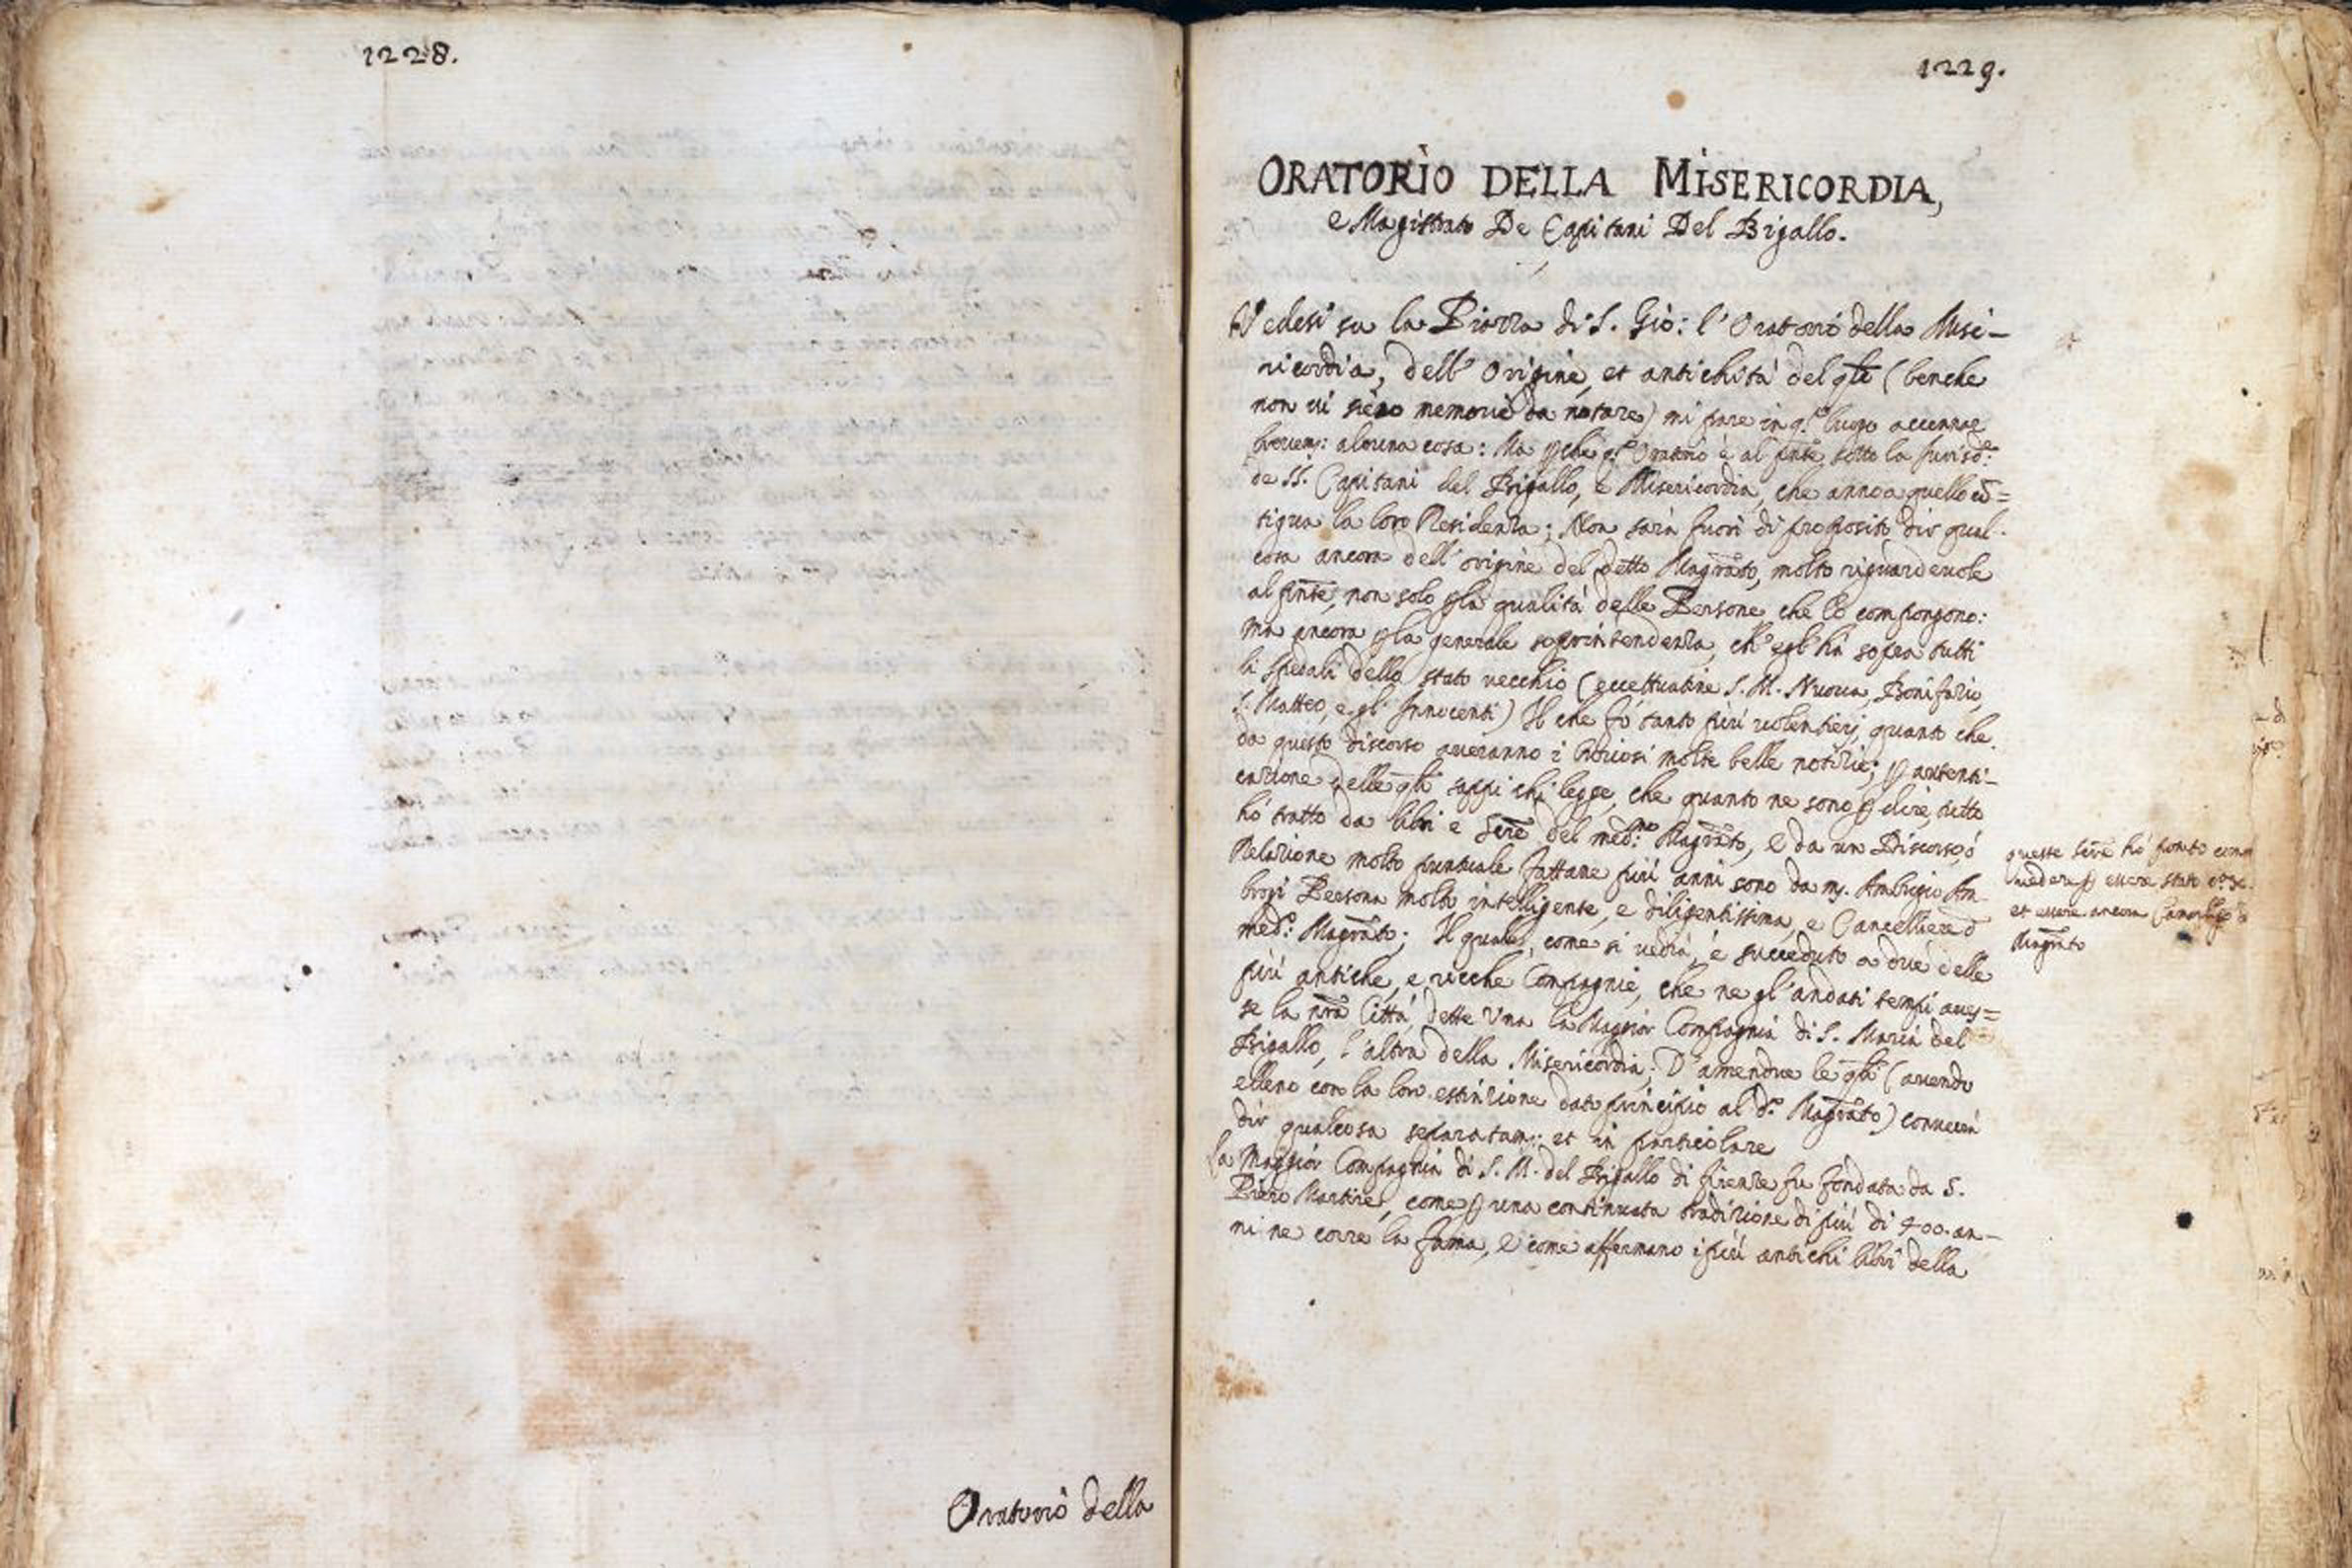 1228.
Oratorio della
1229.
ORATORIO DELLA MISERICORDIA,
e Magistrato De Capitani Del Bigallo.
Vedesi su la Piazza di S. Gio: l'Oratorio della Mise-
ricordia, dell'Origine, et antichità del qle (benche
non vi sieno memorie da notare) mi pare in q.o luogo accennar
brevem: alcuna cosa: Ma pche q.o Oratorio è al pnte sotto la Jurisd:
de SS. Capitani del Bigallo, e Misericordia, che anno a quello cō=
tigua la loro Residenza; Non sarà fuori di proposito dir qual-
cosa ancora dell'origine del detto Magrato, molto riguardevole
al pnte, non solo p la qualità delle Persone che lo compongono:
ma ancora p la generale soprintendenza, ch'egl'hà sopra tutti
li spedali dello stato vecchio (eccettuatine S. M. Nuova, Bonifazio,
S. Matteo, e gl'Innocenti) Il che fò tanto più volentieri, quanto che
da questo discorso averanno i Curiosi molte belle notizie; p autenti-
cazione delle qli sappi chi legge, che quanto ne sono p dire, tutto
hò tratto da libri e scrre del med:mo Magrato, e da un Discorso, ò
Relazione molto puntuale fattane più anni sono da m. Ambrogio Am-
brogi Persona molto intelligente, e diligentissima, e Cancelliere d
med:o Magrato; Il quale, come si vedrà, è succeduto a due delle
più antiche, e ricche Compagnie, che ne gl'andati tempi aves=
se la nrà Città, dette Una la Maggior Compagnia di S. Maria del
Bigallo, l'altra della Misericordia; D'amendue le qli (avendo
elleno con la loro estinzione dato principio al d.o Magrato) converrà
dir qualcosa separatam: et in particolare
La Maggior Compagnia di S. M. del Bigallo di firenze fu fondata da S.
Piero Martire, come p una continuata tradizione di più di 400. an-
ni ne corre la fama, e come affermano i più antichi libri della
queste scrre hò potuto com
vedere p essere stato
et essere ancora
Magrato